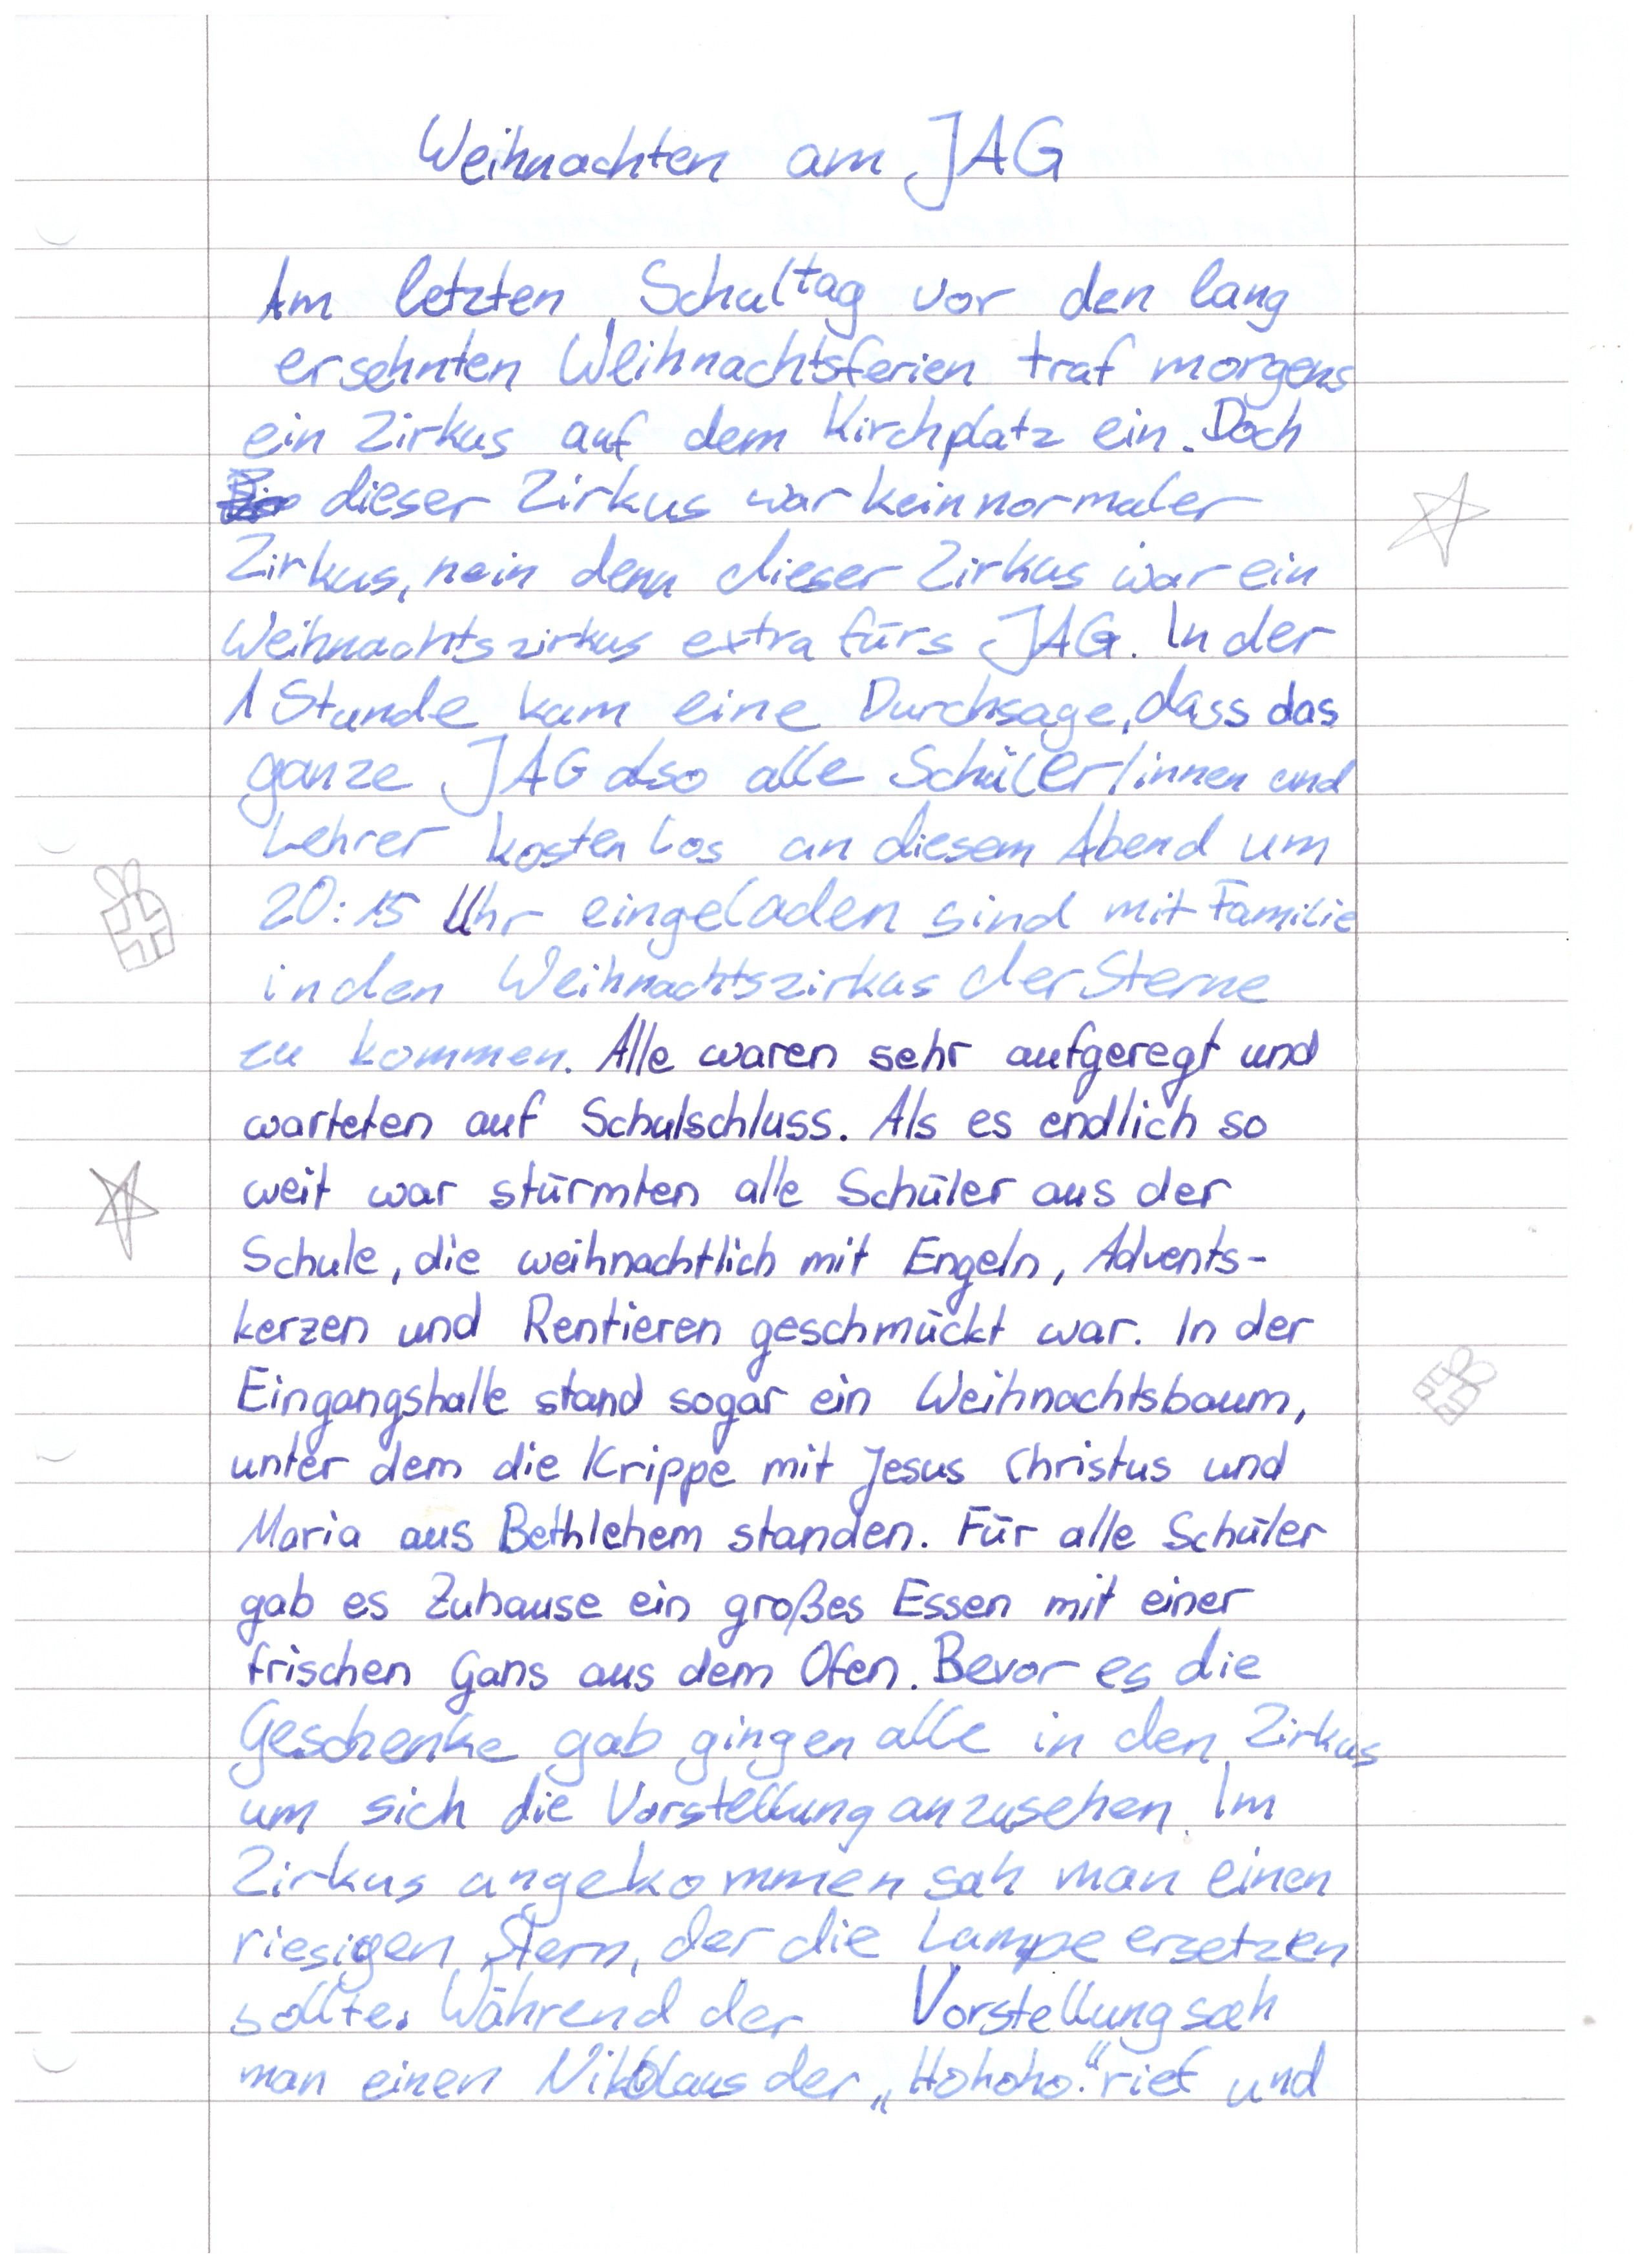 Weihnachten am JAG
Am letzten Schultag vor den lang
ersehnten Weihnachtsferien traf morgens
ein Zirkus auf dem Kirchplatz ein. Doch
dieser Zirkus war kein normaler
Zirkus, nein denn dieser Zirkus war ein
Weihnachtszirkus extra fürs JAG. In der
1 Stunde kam eine Durchsage, dass das
ganze JAG also alle Schüler/innen und
Lehrer kostenlos an diesem Abend um
20:15 Uhr eingeladen sind mit Familie
in den Weihnachtszirkus der Sterne
zu kommen. Alle waren sehr aufgeregt und
warteten auf Schulschluss. Als es endlich so
weit war stürmten alle Schüler aus der
Schule, die weihnachtlich mit Engeln, Advents-
kerzen und Rentieren geschmückt war. In der
Eingangshalle stand sogar ein Weihnachtsbaum,
unter dem die Krippe mit Jesus Christus und
Maria aus Bethlehem standen. Für alle Schüler
gab es Zuhause ein großes Essen mit einer
frischen Gans aus dem Ofen. Bevor es die
Geschenke gab gingen alle in den Zirkus
um sich die Vorstellung anzusehen. Im
Zirkus angekommen sah man einen
riesigen Stern, der die Lampe ersetzen
sollte. Während der Vorstellung sah
man einen Nikolaus der „Hohoho." rief und